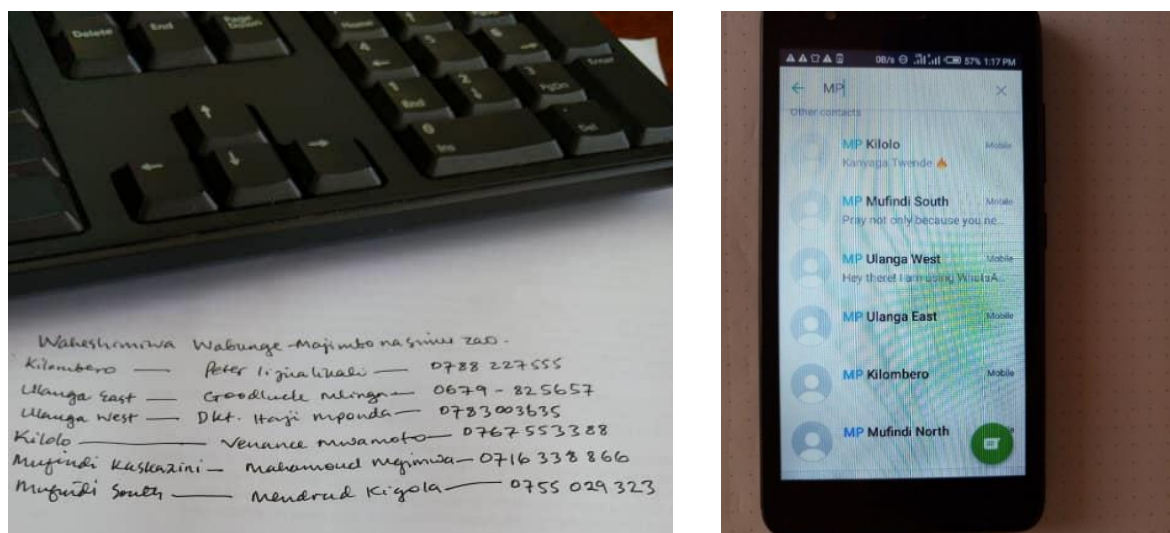 Delete
End
Page Down
Home
4
5
6
1
End
2
3
PgDn
Enter
0
Ins
Del
Waheshimiwa Wabunge - Majimbo na simu zao.
Kilombero — Peter lijualikali — 0788 227555
Ulanga East — Goodluck mlinga — 0679 - 825657
Ulanga West — Dkt. Haji mponda — 0783003635
Kilolo — Venance mwamoto — 0767553388
Mufindi Kaskazini — Mahamoud mgimwa — 0716 338 866
Mufindi South — Mendrad Kigola — 0755 029 323
0B/s 57% 1:17 PM
MP
Other contacts
MP Kilolo Mobile
Kanyaga Twende 🔥
MP Mufindi South Mobile
Pray not only because you ne...
MP Ulanga West Mobile
Hey there! I am using WhatsA...
MP Ulanga East Mobile
MP Kilombero Mobile
MP Mufindi North